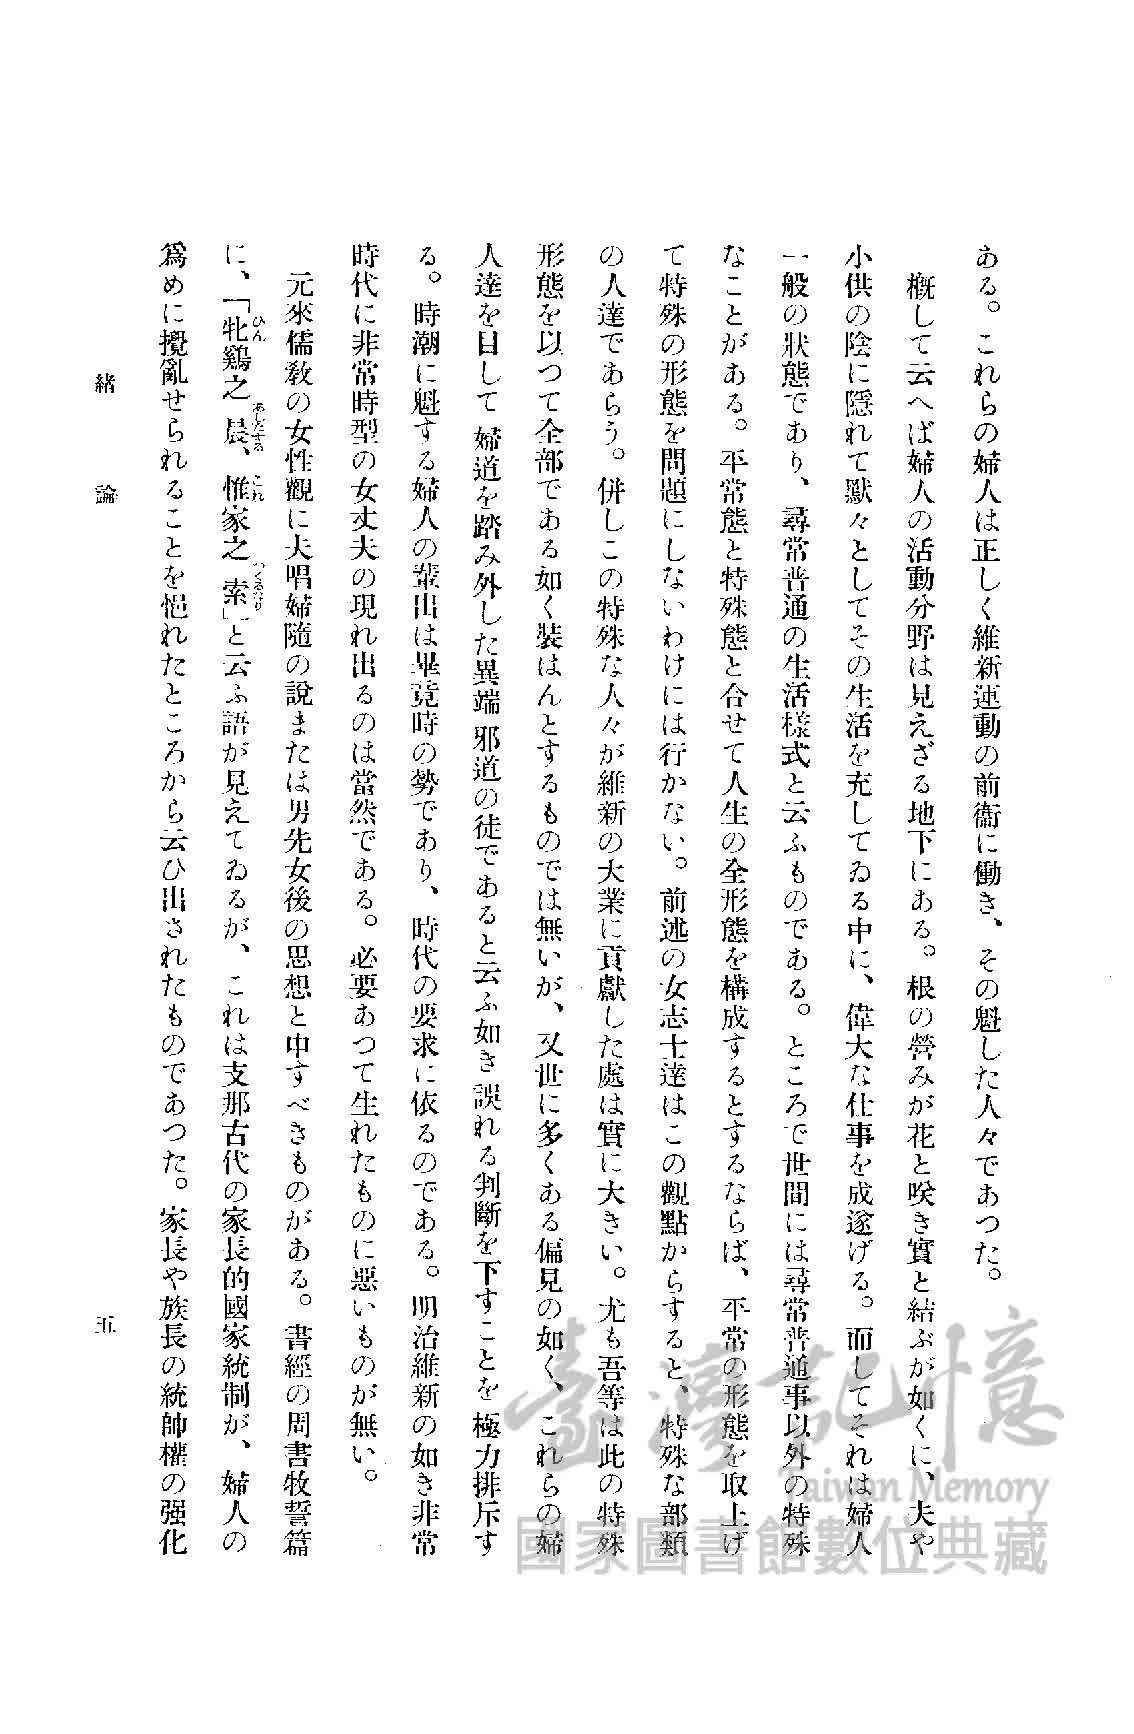 ある。これらの婦人は正しく維新運動の前衞に働き、その魁した人々であつた。
概して云へば婦人の活動分野は見えざる地下にある。根の營みが花と咲き實と結ぶが如くに、夫や
小供の陰に隱れて默々としてその生活を充してゐる中に、偉大な仕事を成遂げる。而してそれは婦人
一般の狀態であり、尋常普通の生活樣式と云ふものである。ところで世間には尋常普通事以外の特殊
なことがある。平常態と特殊態と合せて人生の全形態を構成するとするならば、平常の形態を取上げ
て特殊の形態を問題にしないわけには行かない。前述の女志士達はこの觀點からすると、特殊な部類
の人達であらう。併しこの特殊な人々が維新の大業に貢獻した處は實に大きい。尤も吾等は此の特殊
形態を以つて全部である如く裝はんとするものでは無いが、又世に多くある偏見の如く、これらの婦
人達を目して婦道を踏み外した異端邪道の徒であると云ふ如き誤れる判斷を下すことを極力排斥す
る。時潮に魁する婦人の輩出は畢竟時の勢であり、時代の要求に依るのである。明治維新の如き非常
時代に非常時型の女丈夫の現れ出るのは當然である。必要あつて生れたものに惡いものが無い。
元來儒敎の女性觀に夫唱婦隨の說または男先女後の思想と申すべきものがある。書經の周書牧誓篇
に、「牝鷄之晨、惟家之索」と云ふ語が見えてゐるが、これは支那古代の家長的國家統制が、婦人の
ひん あしたする これ つくるなり
爲めに攪亂せられることを悒れたところから云ひ出されたものであつた。家長や族長の統帥權の强化
緖論
五
臺灣記憶
Taiwan Memory
國家圖書館數位典藏